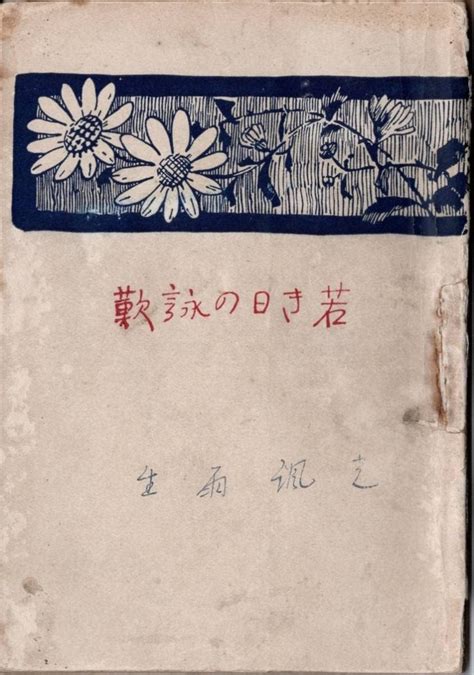 若き日の詠歎
諷雨生